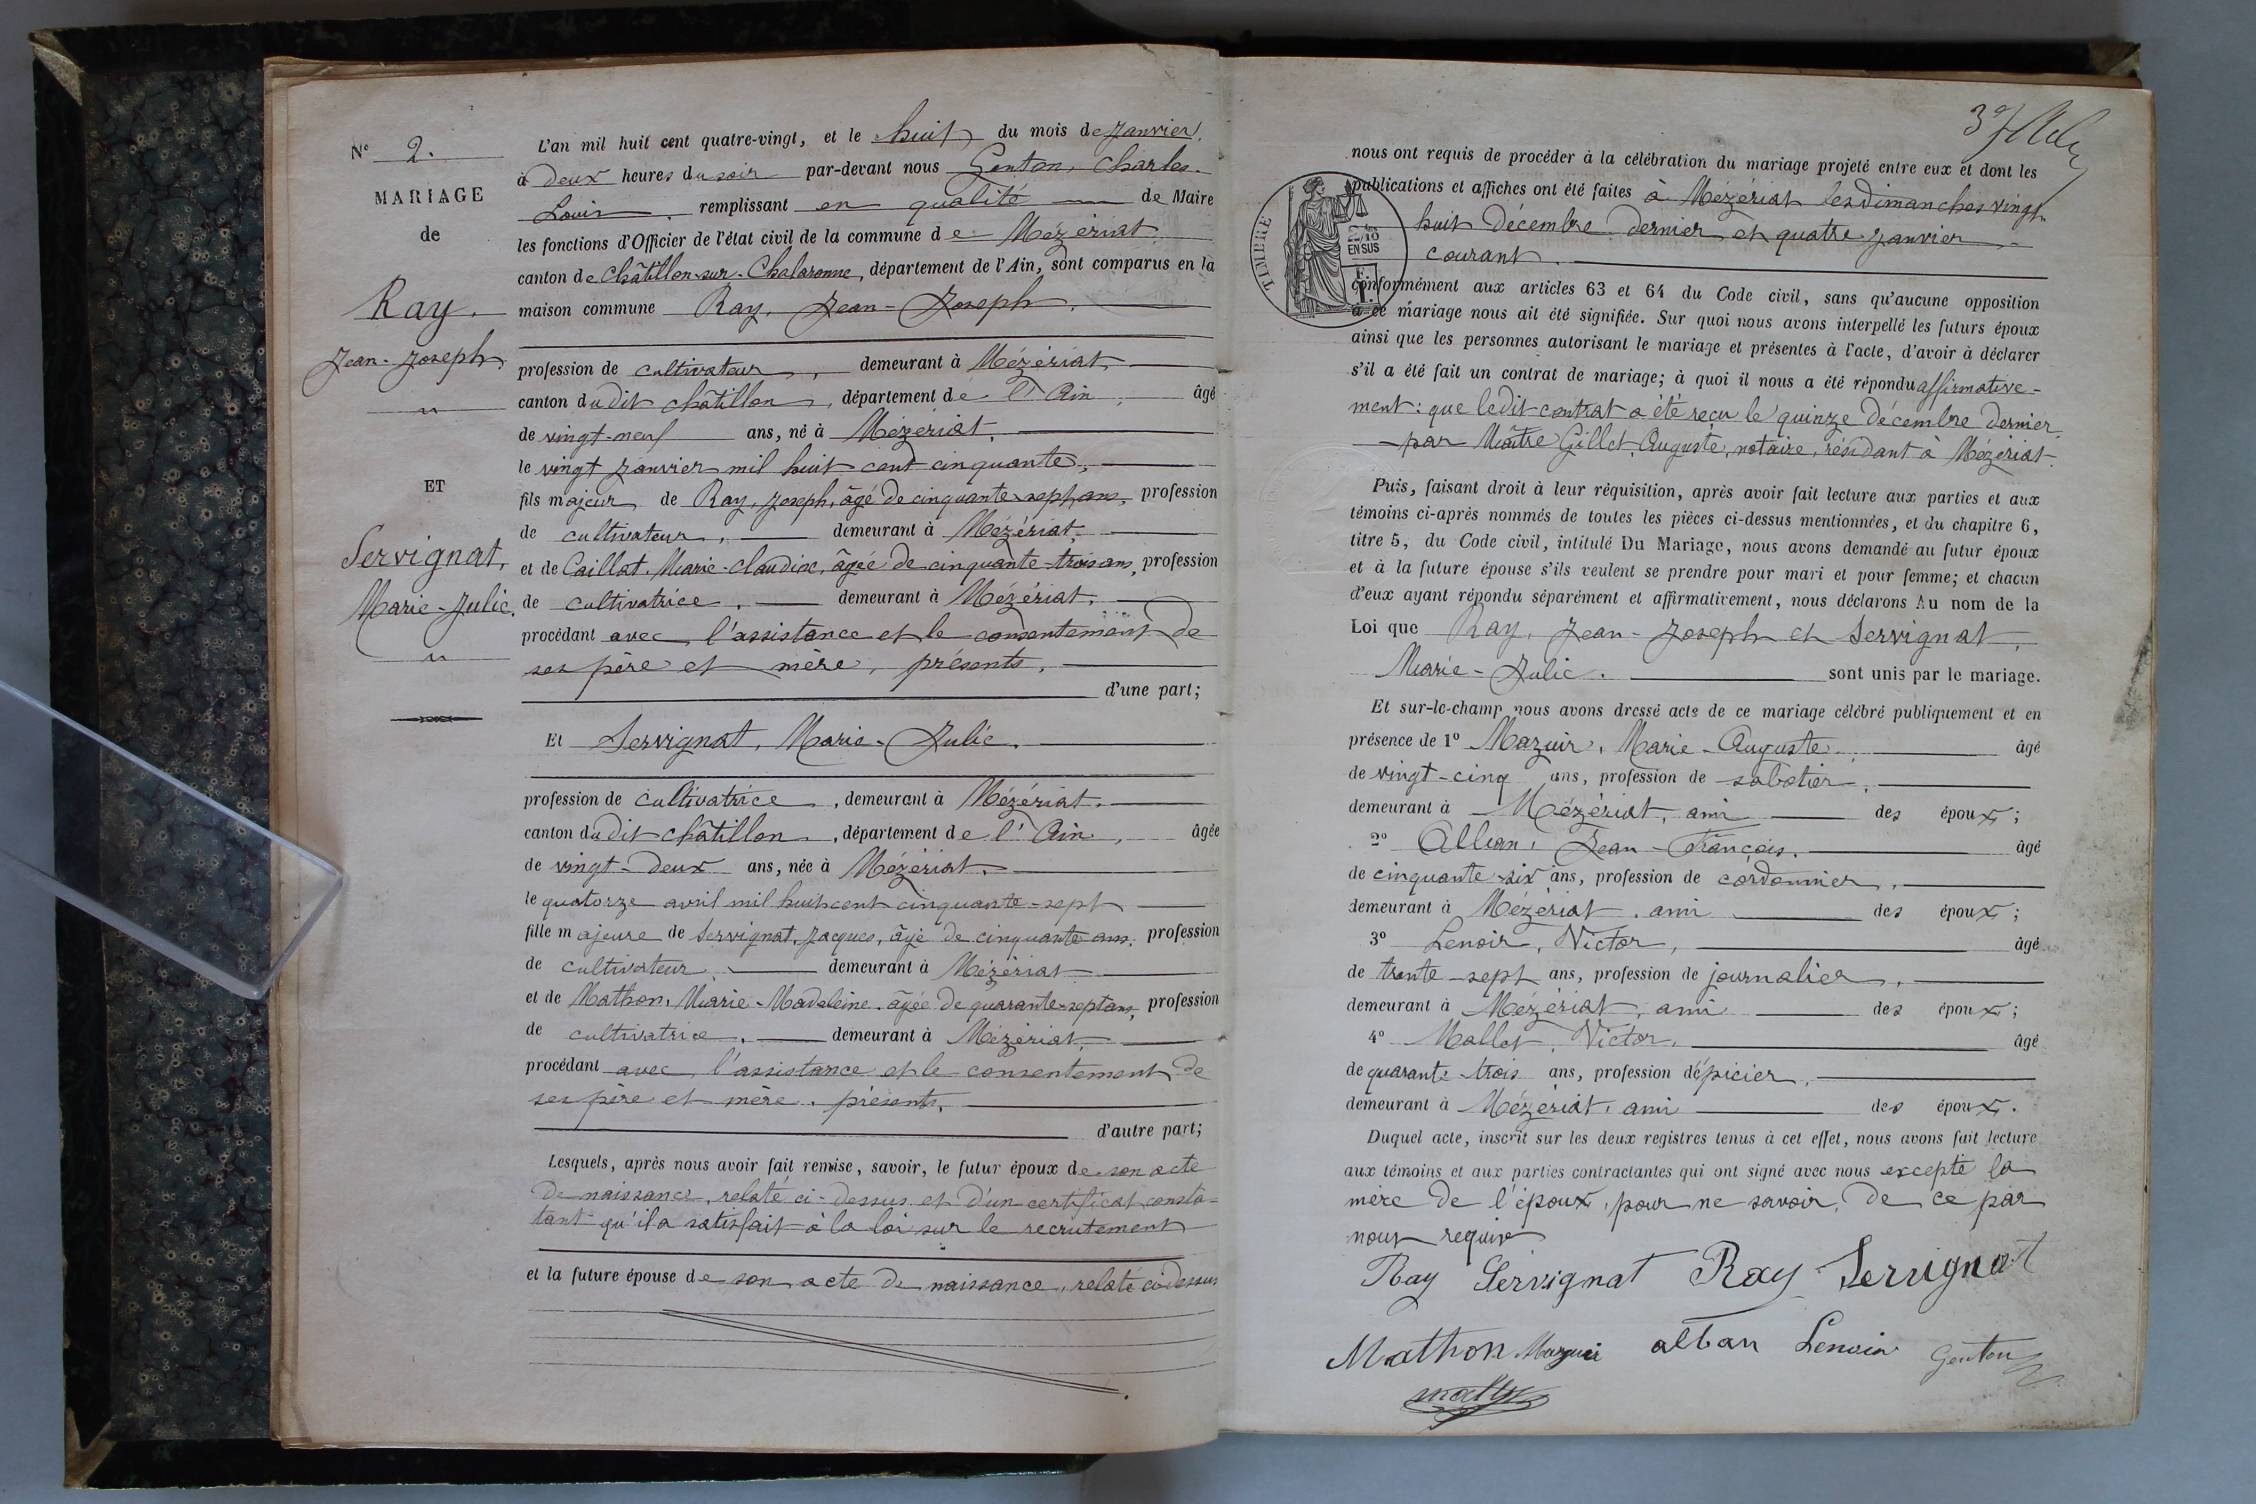 N° 2.
MARIAGE
de
Ray,
Jean-Joseph
ET
Servignat,
Marie-Julie.
L'an mil huit cent quatre-vingt, et le huit du mois de Janvier,
à deux heures du soir par-devant nous Genton, Charles-
Louis, remplissant en qualité de Maire
les fonctions d'Officier de l'état civil de la commune de Mézériat,
canton de Châtillon-sur-Chalaronne, département de l'Ain, sont comparus en la
maison commune Ray, Jean-Joseph,
profession de cultivateur, demeurant à Mézériat,
canton dudit châtillon, département de l'Ain, âgé
de vingt-neuf ans, né à Mézériat,
le vingt janvier mil huit cent cinquante,
fils majeur de Ray, Joseph, âgé de cinquante-sept ans, profession
de cultivateur, demeurant à Mézériat,
et de Caillat, Marie-Claudine, âgée de cinquante-trois ans, profession
de cultivatrice, demeurant à Mézériat,
procédant avec l'assistance et le consentement de
ses père et mère, présents,
d'une part;
Et Servignat, Marie-Julie,
profession de cultivatrice, demeurant à Mézériat,
canton dudit châtillon, département de l'Ain, âgée
de vingt-deux ans, née à Mézériat,
le quatorze avril mil huit cent cinquante-sept
fille majeure de Servignat, Jacques, âgé de cinquante ans, profession
de cultivateur, demeurant à Mézériat
et de Mathon, Marie-Madeleine, âgée de quarante-sept ans, profession
de cultivatrice, demeurant à Mézériat,
procédant avec l'assistance et le consentement de
ses père et mère, présents,
d'autre part;
Lesquels, après nous avoir fait remise, savoir, le futur époux de son acte
de naissance, relaté ci-dessus, et d'un certificat consta-
tant qu'il a satisfait à la loi sur le recrutement
et la future épouse de son acte de naissance, relaté ci-dessus
nous ont requis de procéder à la célébration du mariage projeté entre eux et dont les
publications et affiches ont été faites à Mézériat les dimanches vingt-
huit décembre dernier et quatre janvier
courant.
TIMBRE
2/10
EN SUS
conformément aux articles 63 et 64 du Code civil, sans qu'aucune opposition
à ce mariage nous ait été signifiée. Sur quoi nous avons interpellé les futurs époux
ainsi que les personnes autorisant le mariage et présentes à l'acte, d'avoir à déclarer
s'il a été fait un contrat de mariage; à quoi il nous a été répondu affirmative-
ment: que ledit contrat a été reçu le quinze décembre dernier
par Maître Gillet, Auguste, notaire, résidant à Mézériat.
Puis, faisant droit à leur réquisition, après avoir fait lecture aux parties et aux
témoins ci-après nommés de toutes les pièces ci-dessus mentionnées, et du chapitre 6,
titre 5, du Code civil, intitulé Du Mariage, nous avons demandé au futur époux
et à la future épouse s'ils veulent se prendre pour mari et pour femme; et chacun
d'eux ayant répondu séparément et affirmativement, nous déclarons Au nom de la
Loi que Ray, Jean-Joseph et Servignat,
Marie-Julie. sont unis par le mariage.
Et sur-le-champ nous avons dressé acte de ce mariage célébré publiquement et en
présence de 1° Mazuir, Marie-Auguste, âgé
de vingt-cinq ans, profession de sabotier,
demeurant à Mézériat, ami des époux;
2° Alban, Jean-François, âgé
de cinquante-six ans, profession de cordonnier,
demeurant à Mézériat, ami des époux;
3° Lenoir, Victor, âgé
de trente-sept ans, profession de journalier,
demeurant à Mézériat, ami des époux;
4° Mallet, Victor, âgé
de quarante-trois ans, profession d'épicier,
demeurant à Mézériat, ami des époux.
Duquel acte, inscrit sur les deux registres tenus à cet effet, nous avons fait lecture
aux témoins et aux parties contractantes qui ont signé avec nous excepté la
mère de l'époux, pour ne savoir, de ce par
nous requise
Ray Servignat Ray Servignat
Mathon Mazuir alban Lenoir Genton